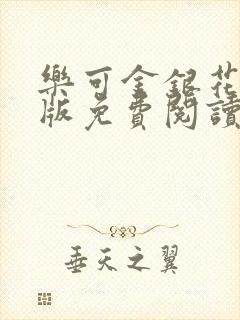 樂可金銀花
版免費閱讀
垂天之翼